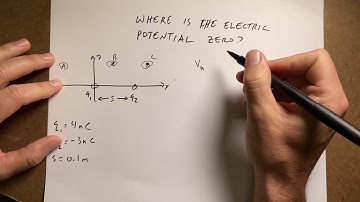 WHERE IS THE ELECTRIC
POTENTIAL ZERO?
A B C
x
q₁ ← s → q₂
V
q₁ = 4nC
= -3nC
s = 0.1m